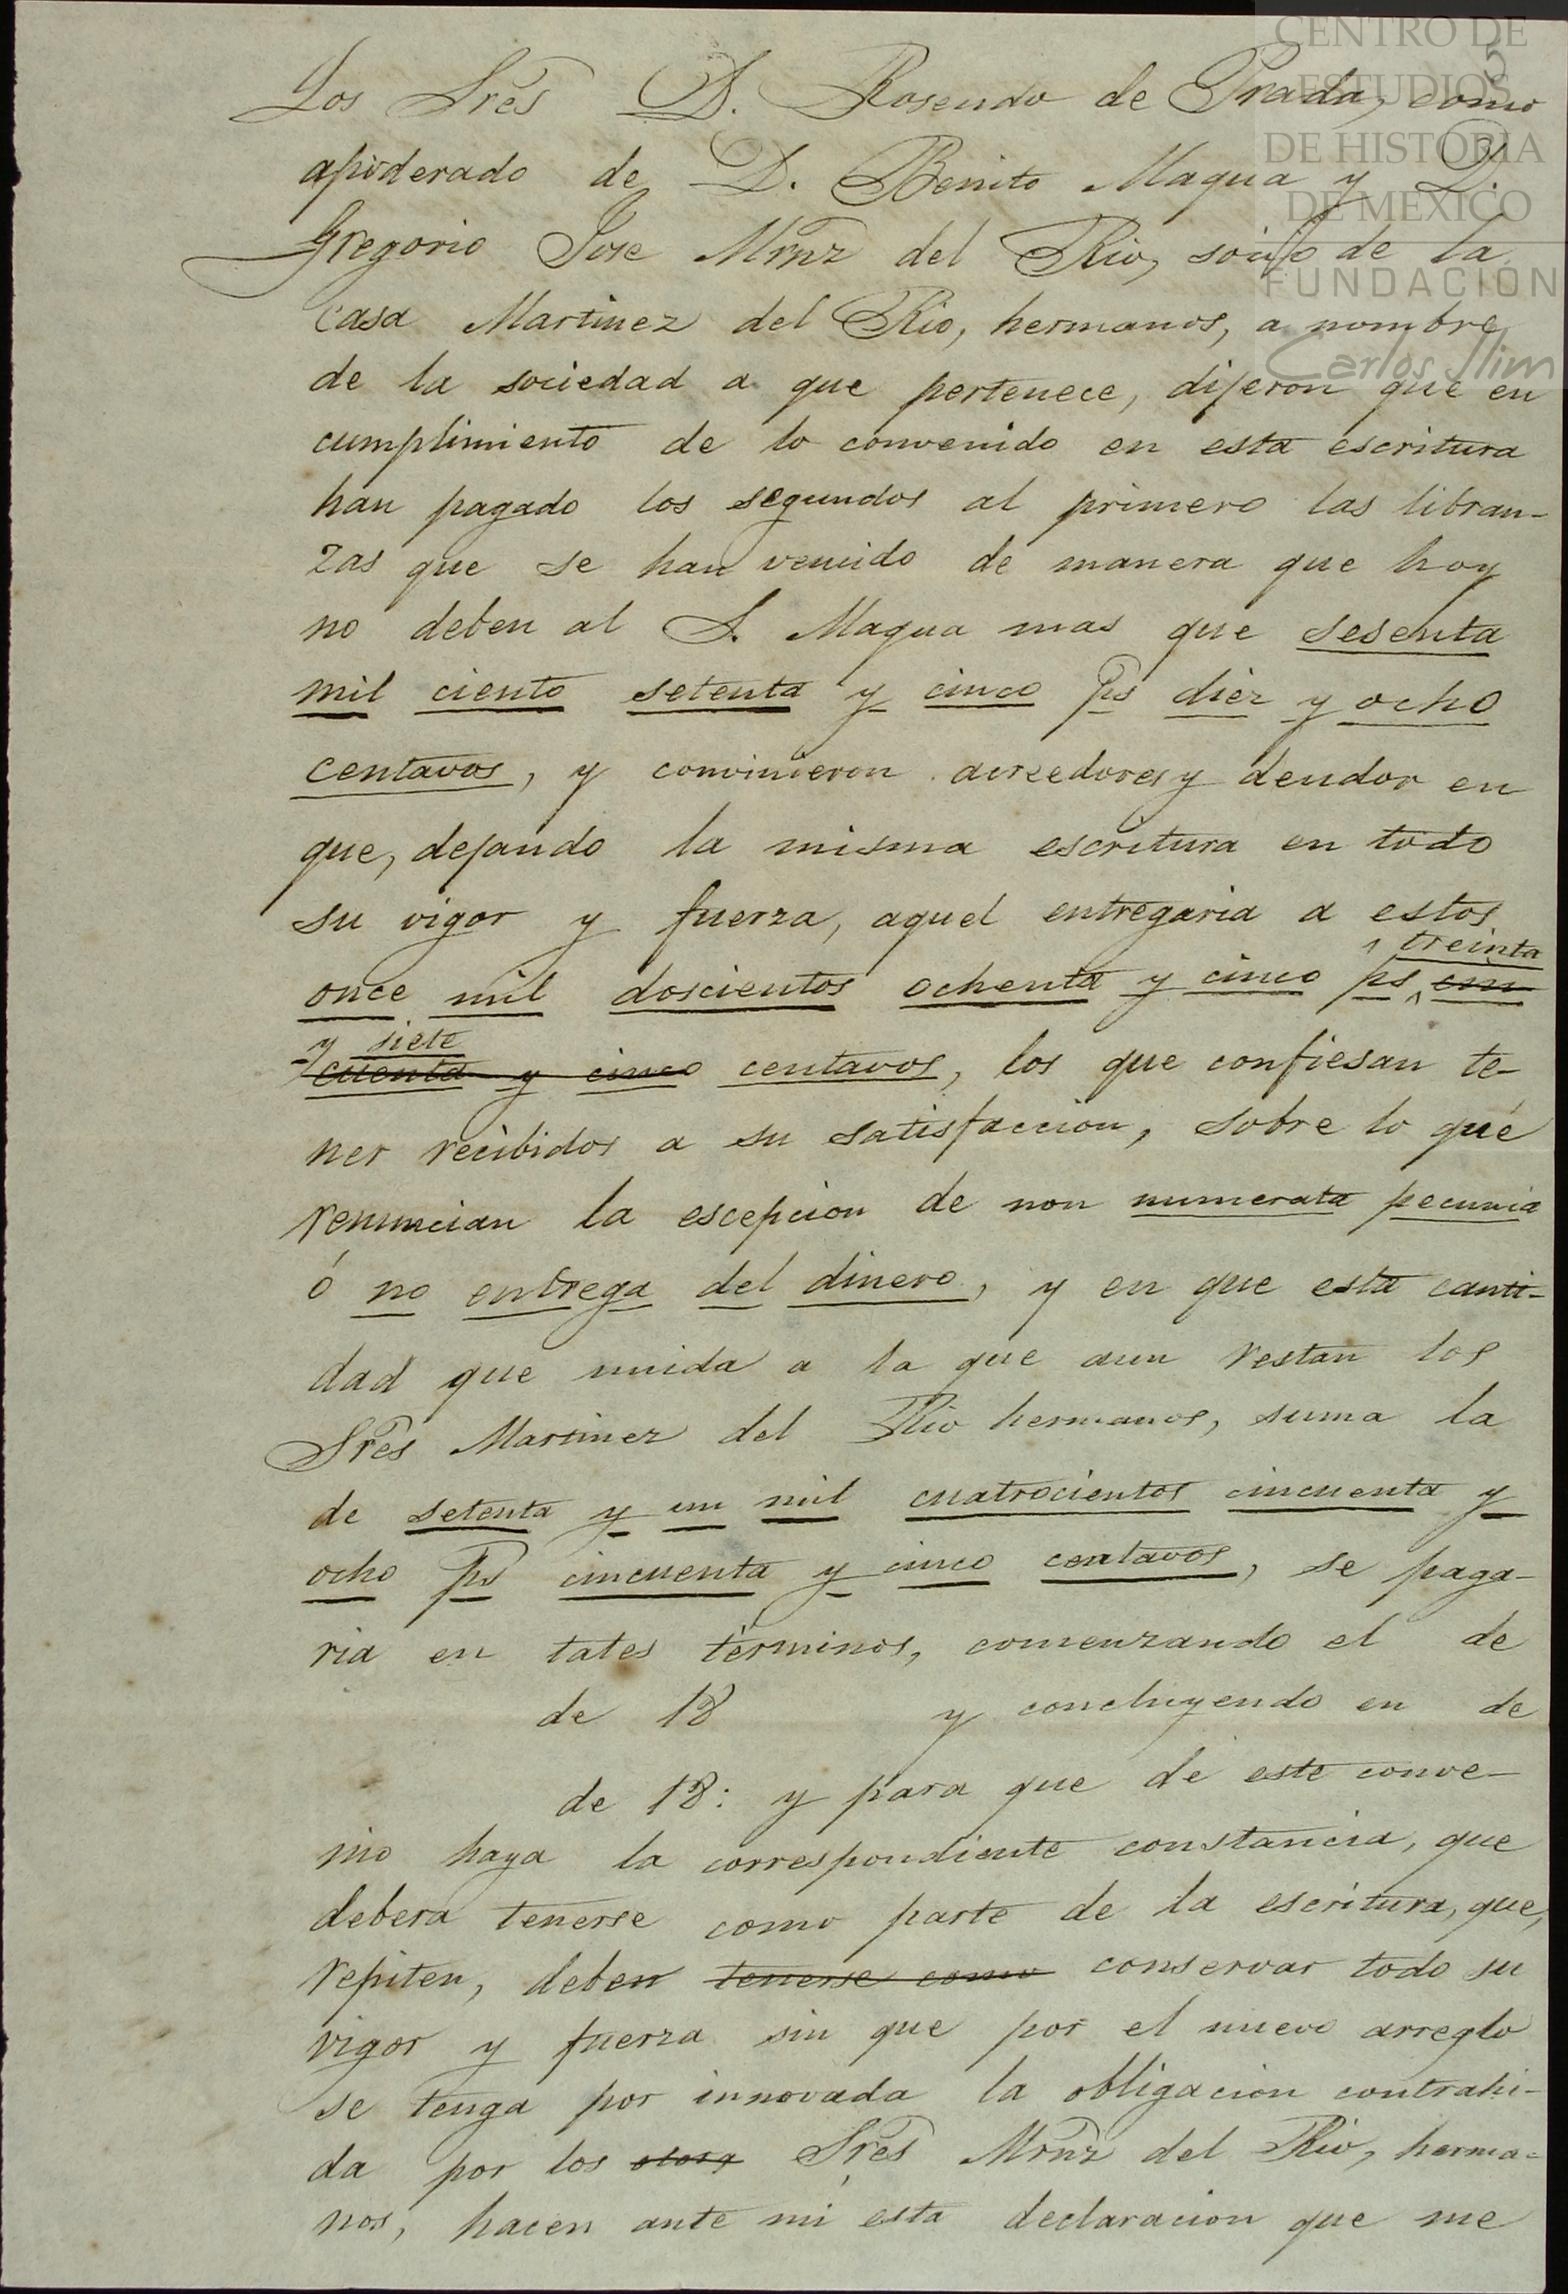 CENTRO DE
ESTUDIOS
DE HISTORIA
DE MEXICO
FUNDACIÓN
Carlos Slim
5
Los Sres D. Rosendo de Prada, como
apoderado de D. Benito Maqua y D.
Gregorio Jose Mrnz del Rio, socio de la
casa Martinez del Rio, hermanos, a nombre
de la sociedad a que pertenece, dijeron que en
cumplimiento de lo convenido en esta escritura
han pagado los segundos al primero las libran-
zas que se han vencido de manera que hoy
no deben al S. Maqua mas que sesenta
mil ciento setenta y cinco ps diez y ocho
centavos, y convinieron acreedores y deudor en
que, dejando la misma escritura en todo
su vigor y fuerza, aquel entregaria a estos
treinta
once mil doscientos ochenta y cinco ps cin
y siete
cuenta y cinco centavos, los que confiesan te-
ner recibidos a su satisfaccion, sobre lo que
renuncian la escepcion de non numerata pecunia
ó no entrega del dinero, y en que esta canti-
dad que unida a la que aun restan los
Sres Martinez del Rio hermanos, suma la
de setenta y un mil cuatrocientos cincuenta y
ocho ps cincuenta y cinco centavos, se paga-
ria en tales términos, comenzando el de
de 18 y concluyendo en de
de 18: y para que de este conve-
nio haya la correspondiente constancia, que
debera tenerse como parte de la escritura, que,
repiten, deben tenerse como conservar todo su
vigor y fuerza sin que por el nuevo arreglo
se tenga por innovada la obligacion contrahi-
da por los Sres Mrnz del Rio, herma-
nos, hacen ante mi esta declaracion que me